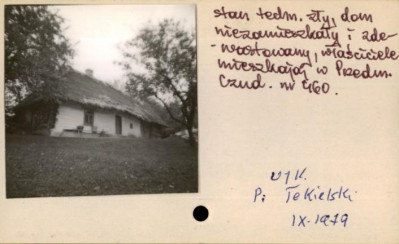 stan techn. zły, dom
niezamieszkały i zde-
wastowany, właściciele
mieszkają w Przedm.
Czud. nr 460.
wyk.
P. Tekielski
IX. 1979